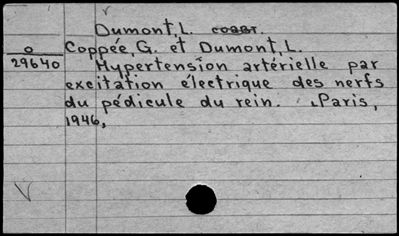 Dumont, L. соавт.
о Coppée, G. et Dumont, L.
29640 Hypertension artérielle par
excitation électrique des nerfs
du pédicule du rein. Paris,
1946,
V